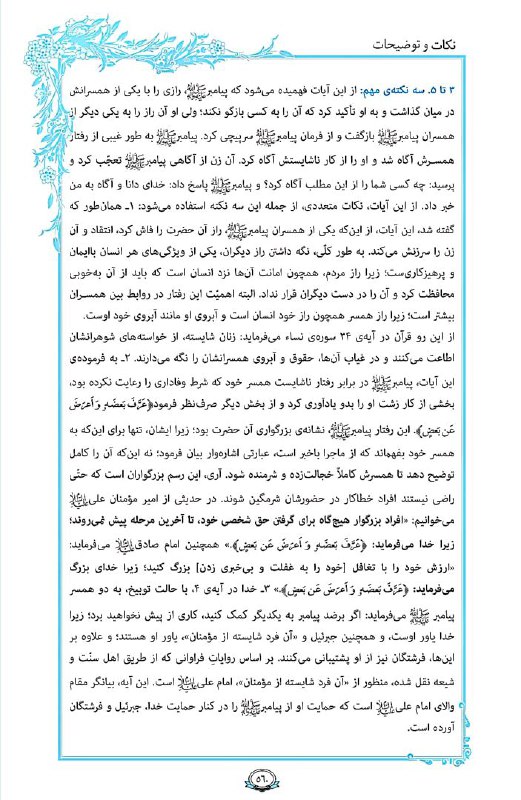 نکات و توضیحات
۳ تا ۵. سه نکته‌ی مهم: از این آیات فهمیده می‌شود که پیامبرﷺ، رازی را با یکی از همسرانش
در میان گذاشت و به او تأکید کرد که آن را به کسی بازگو نکند؛ ولی او آن راز را به یکی دیگر از
همسران پیامبرﷺ بازگفت و از فرمان پیامبرﷺ سرپیچی کرد. پیامبرﷺ به طور غیبی از رفتار
همسرش آگاه شد و او را از کار ناشایستش آگاه کرد. آن زن از آگاهی پیامبرﷺ تعجّب کرد و
پرسید: چه کسی شما را از این مطلب آگاه کرد؟ و پیامبرﷺ پاسخ داد: خدای دانا و آگاه به من
خبر داد. از این آیات، نکات متعددی، از جمله این سه نکته استفاده می‌شود: ۱ـ همان‌طور که
گفته شد، این آیات، از این‌که یکی از همسران پیامبرﷺ، راز آن حضرت را فاش کرد، انتقاد و آن
زن را سرزنش می‌کند. به طور کلّی، نگه داشتن راز دیگران، یکی از ویژگی‌های هر انسان باایمان
و پرهیزکاری‌ست؛ زیرا راز مردم، همچون امانت آن‌ها نزد انسان است که باید از آن به‌خوبی
محافظت کرد و آن را در دست دیگران قرار نداد. البته اهمیّت این رفتار در روابط بین همسران
بیشتر است؛ زیرا راز همسر همچون راز خود انسان است و آبروی او مانند آبروی خود اوست.
از این رو قرآن در آیه‌ی ۳۴ سوره‌ی نساء می‌فرماید: زنان شایسته، از خواسته‌های شوهرانشان
اطاعت می‌کنند و در غیاب آن‌ها، حقوق و آبروی همسرانشان را نگه می‌دارند. ۲ـ به فرموده‌ی
این آیات، پیامبرﷺ در برابر رفتار ناشایست همسر خود که شرط وفاداری را رعایت نکرده بود،
بخشی از کار زشت او را بدو یادآوری کرد و از بخش دیگر صرف‌نظر فرمود﴿عَرَّفَ بَعضَهُ وَ أَعرَضَ
عَن بَعضٍ﴾. این رفتار پیامبرﷺ، نشانه‌ی بزرگواری آن حضرت بود؛ زیرا ایشان، تنها برای این‌که به
همسر خود بفهماند که از ماجرا باخبر است، عبارتی اشاره‌وار بیان فرمود؛ نه این‌که آن را کامل
توضیح دهد تا همسرش کاملاً خجالت‌زده و شرمنده شود. آری، این رسم بزرگواران است که حتّی
راضی نیستند افراد خطاکار در حضورشان شرمگین شوند. در حدیثی از امیر مؤمنان علی علیه‌السلام
می‌خوانیم: «افراد بزرگوار هیچ‌گاه برای گرفتن حق شخصی خود، تا آخرین مرحله پیش نمی‌روند؛
زیرا خدا می‌فرماید: ﴿عَرَّفَ بَعضَهُ وَ أَعرَضَ عَن بَعضٍ﴾.» همچنین امام صادق علیه‌السلام می‌فرماید:
«ارزش خود را با تغافل [خود را به غفلت و بی‌خبری زدن] بزرگ کنید؛ زیرا خدای بزرگ
می‌فرماید: ﴿عَرَّفَ بَعضَهُ وَ أَعرَضَ عَن بَعضٍ﴾.» ۳ـ خدا در آیه‌ی ۴، با حالت توبیخ، به دو همسر
پیامبرﷺ می‌فرماید: اگر برضد پیامبر به یکدیگر کمک کنید، کاری از پیش نخواهید برد؛ زیرا
خدا یاور اوست، و همچنین جبرئیل و «آن فرد شایسته از مؤمنان»، یاور او هستند؛ و علاوه بر
این‌ها، فرشتگان نیز از او پشتیبانی می‌کنند. بر اساس روایاتِ فراوانی که از طریق اهل سنّت و
شیعه نقل شده، منظور از «آن فرد شایسته از مؤمنان»، امام علی علیه‌السلام است. این آیه، بیانگر مقام
والای امام علی علیه‌السلام است که حمایت او از پیامبرﷺ را در کنار حمایت خدا، جبرئیل و فرشتگان
آورده است.
۵۶۰